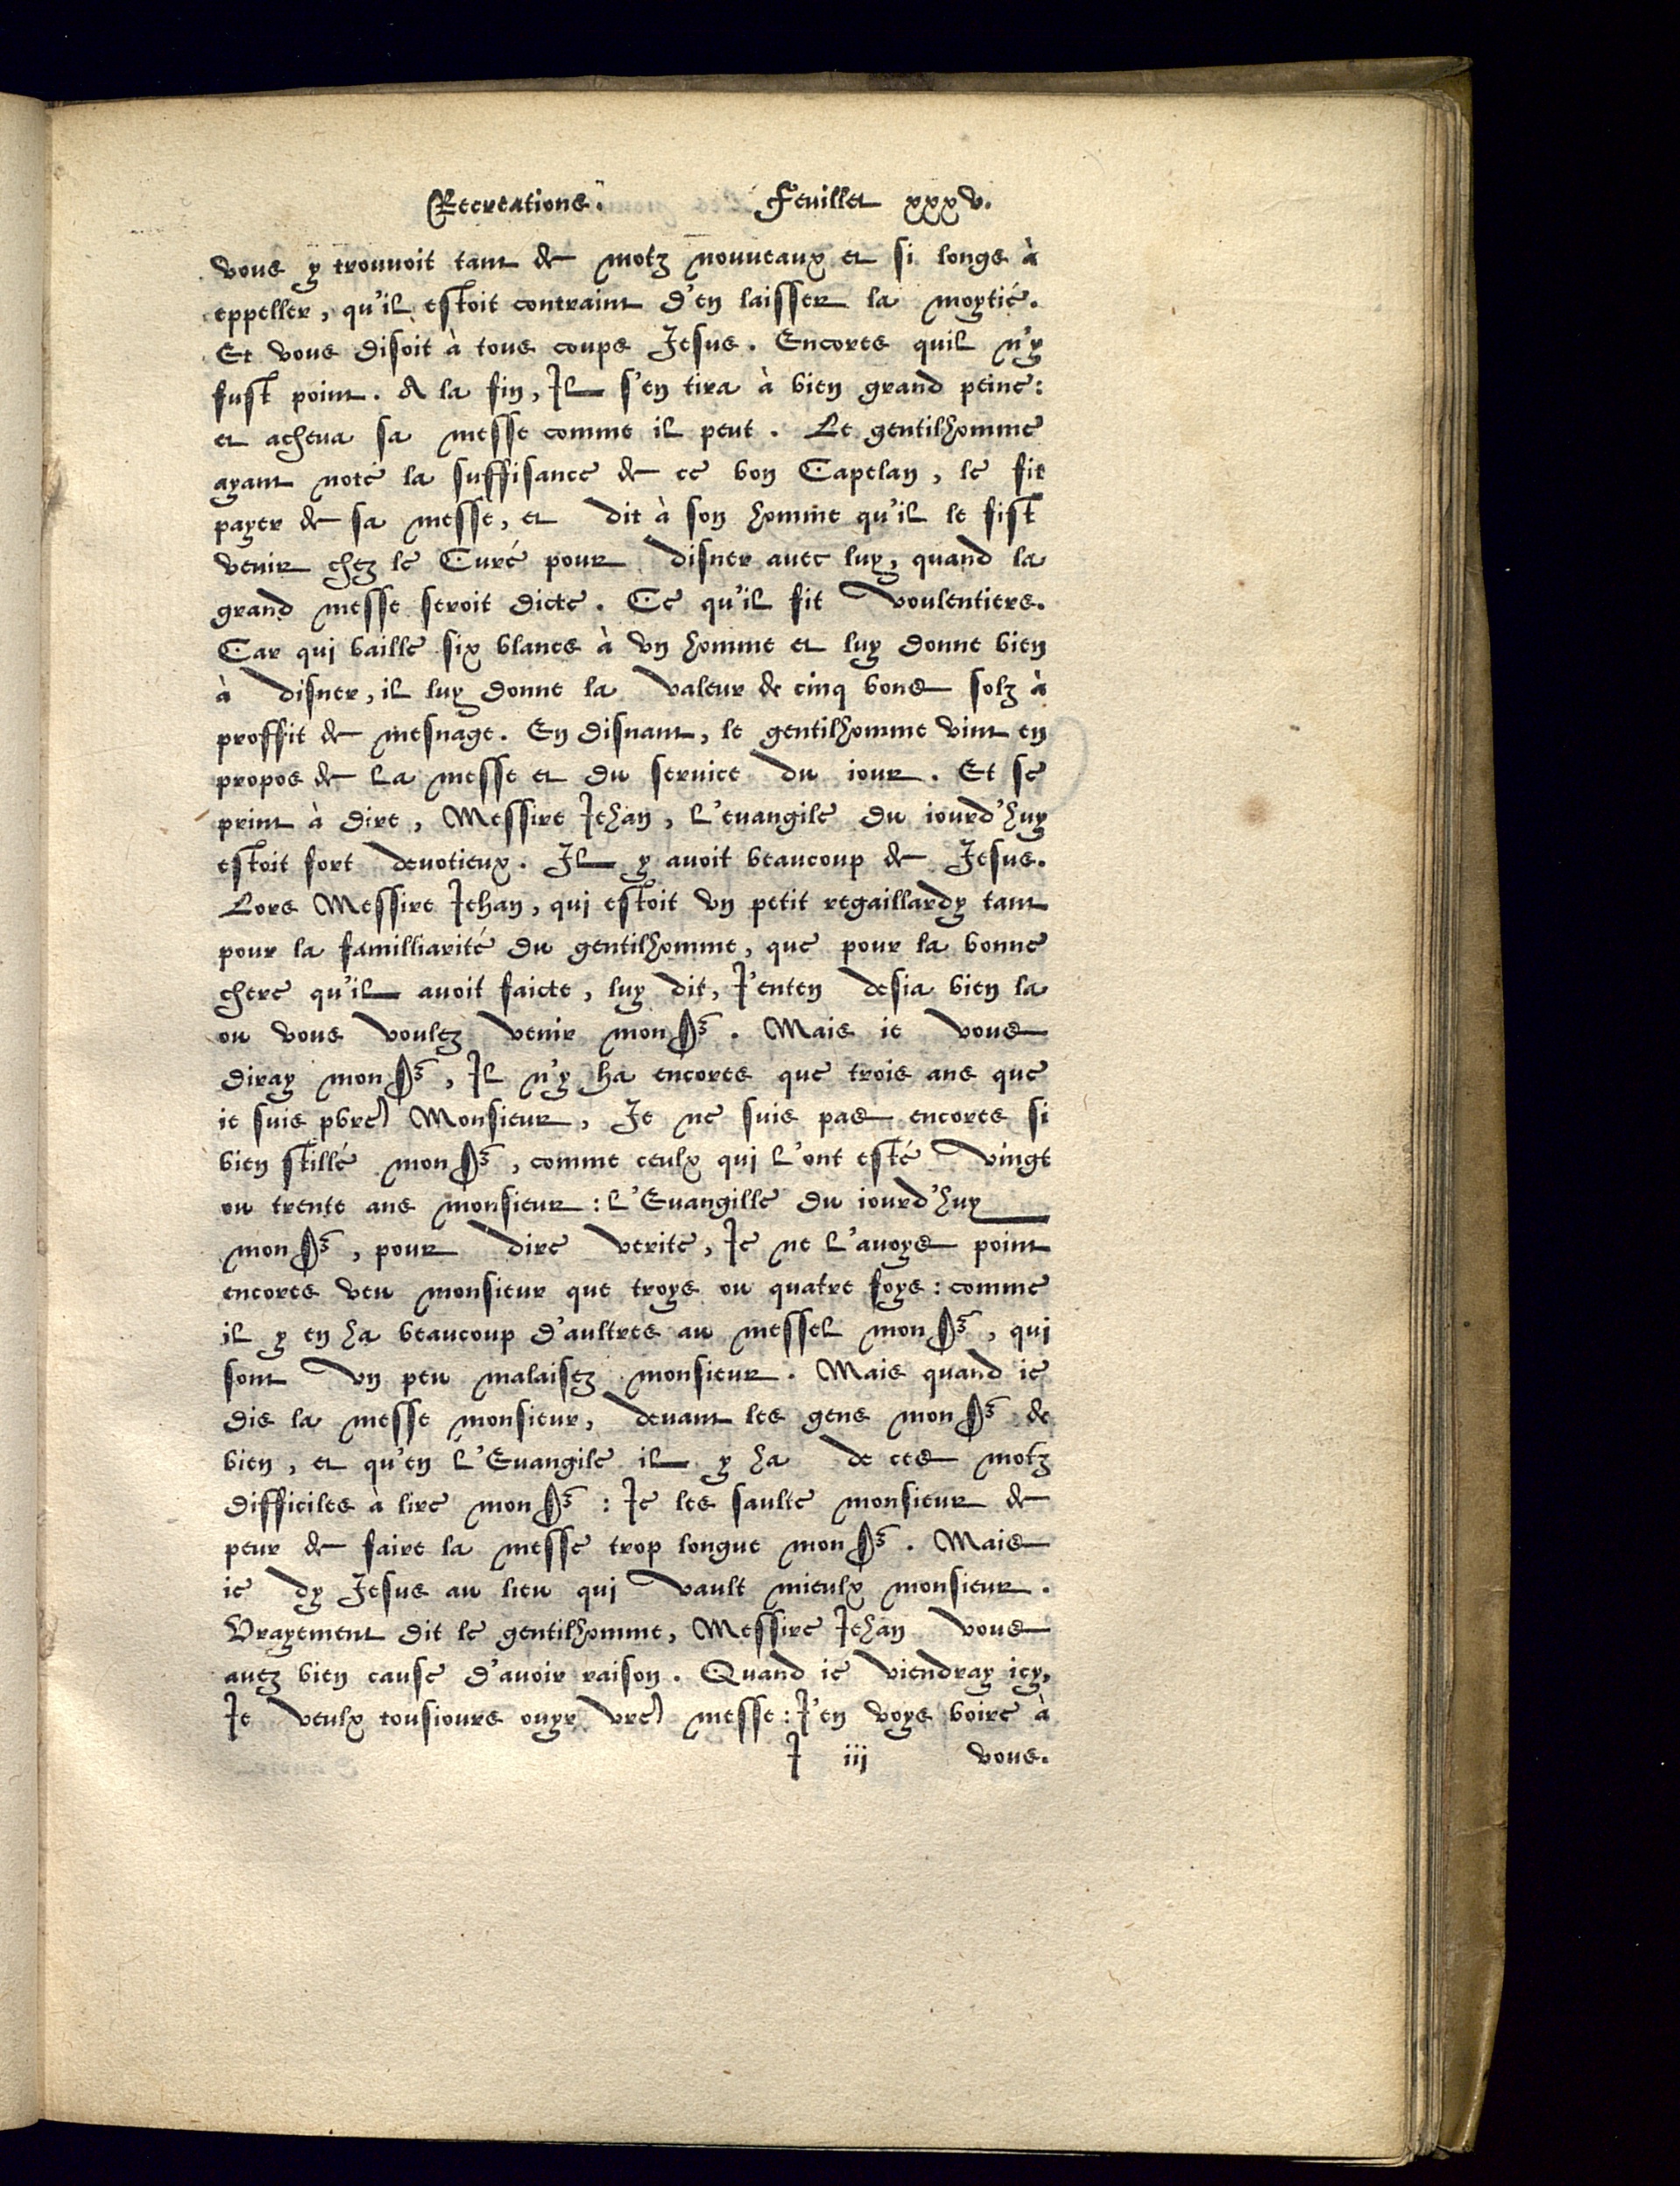 Recreations. Feuillet xxxv.
vous y trouuoit tant de motz nouueaux et si longs à
eppeller, qu'il estoit contraint d'en laisser la moytié.
Et vous disoit à tous coups Jesus. Encores quil n'y
fust point. A la fin, Il s'en tira à bien grand peine:
et acheua sa messe comme il peut. Le gentilhomme
ayant noté la suffisance de ce bon Capelan, le fit
payer de sa messe, et dit à son homme qu'il le fist
venir chez le Curé pour disner auec luy, quand la
grand messe seroit dicte. Ce qu'il fit voulentiers.
Car qui baille six blancs à vn homme et luy donne bien
à disner, il luy donne la valeur de cinq bons solz à
proffit de mesnage. En disnant, le gentilhomme vint en
propos de la messe et du seruice du iour. Et se
print à dire, Messire Jehan, l'euangile du iourd'huy
estoit fort deuotieux. Il y auoit beaucoup de Jesus.
Lors Messire Jehan, qui estoit vn petit regaillardy tant
pour la familliarité du gentilhomme, que pour la bonne
chere qu'il auoit faicte, luy dit, J'enten desia bien la
ou vous voulez venir monsr. Mais ie vous
diray monsr, Il n'y ha encores que trois ans que
ie suis pbre Monsieur, Je ne suis pas encores si
bien stillé monsr, comme ceulx qui l'ont esté vingt
ou trente ans monsieur: l'Euangille du iourd'huy
monsr, pour dire verite, Je ne l'auoys point
encores veu monsieur que troys ou quatre foys: comme
il y en ha beaucoup d'aultres au messel monsr, qui
sont vn peu malaisez monsieur. Mais quand ie
dis la messe monsieur, deuant les gens monsr de
bien, et qu'en l'Euangile il y ha de ces motz
difficiles à lire monsr: Je les saulte monsieur de
peur de faire la messe trop longue monsr. Mais
ie dy Jesus au lieu qui vault mieulx monsieur.
Vrayement dit le gentilhomme, Messire Jehan vous
auez bien cause d'auoir raison. Quand ie viendray icy,
Je veulx tousiours ouyr vre messe: J'en voys boire à
I iij vous.